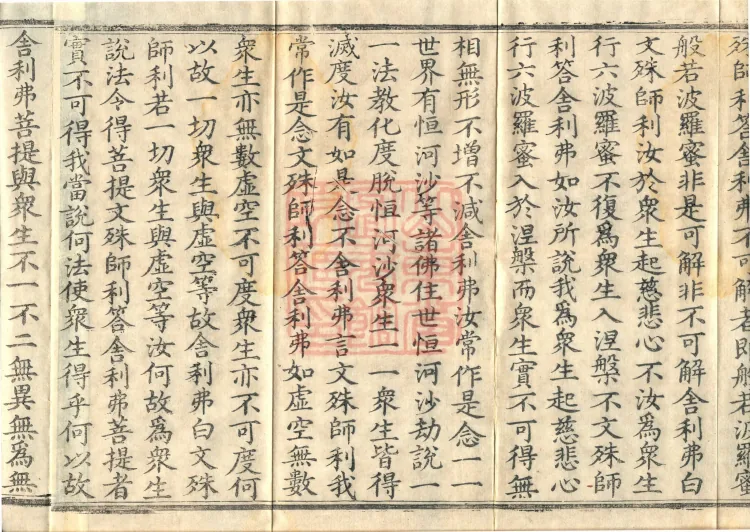 殊師利答舍利弗不可解者即般若波羅蜜
般若波羅蜜非是可解非不可解舍利弗白
文殊師利汝於衆生起慈悲心不汝爲衆生
行六波羅蜜不復爲衆生入涅槃不文殊師
利答舍利弗如汝所說我爲衆生起慈悲心
行六波羅蜜入於涅槃而衆生實不可得無
相無形不增不減舍利弗汝常作是念一一
世界有恒河沙等諸佛住世恒河沙劫說一
一法教化度脫恒河沙衆生一一衆生皆得
滅度汝有如是念不舍利弗言文殊師利我
常作是念文殊師利答舍利弗如虛空無數
衆生亦無數虛空不可度衆生亦不可度何
以故一切衆生與虛空等故舍利弗白文殊
師利若一切衆生與虛空等汝何故爲衆生
說法令得菩提文殊師利答舍利弗菩提者
實不可得我當說何法使衆生得乎何以故
舍利弗菩提與衆生不一不二無異無爲無